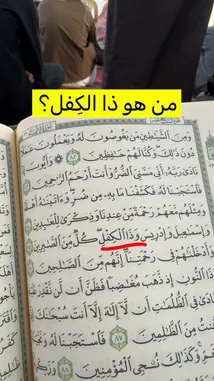 من هو ذا الكِفل؟
وَمِنَ ٱلشَّيَٰطِينِ مَن يَغُوصُونَ لَهُۥ وَيَعْمَلُونَ عَمَلًا
دُونَ ذَٰلِكَ وَكُنَّا لَهُمْ حَٰفِظِينَ ٨٢ وَأَيُّوبَ إِذْ
نَادَىٰ رَبَّهُۥٓ أَنِّي مَسَّنِيَ ٱلضُّرُّ وَأَنتَ أَرْحَمُ ٱلرَّٰحِمِينَ
فَٱسْتَجَبْنَا لَهُۥ فَكَشَفْنَا مَا بِهِۦ مِن ضُرٍّ وَءَاتَيْنَٰهُ أَهْلَهُۥ
وَمِثْلَهُم مَّعَهُمْ رَحْمَةً مِّنْ عِندِنَا وَذِكْرَىٰ لِلْعَٰبِدِينَ
وَإِسْمَٰعِيلَ وَإِدْرِيسَ وَذَا ٱلْكِفْلِ كُلٌّ مِّنَ ٱلصَّٰبِرِينَ
وَأَدْخَلْنَٰهُمْ فِي رَحْمَتِنَآ إِنَّهُم مِّنَ ٱلصَّٰلِحِينَ
ذَا ٱلنُّونِ إِذ ذَّهَبَ مُغَٰضِبًا فَظَنَّ أَن لَّن نَّقْدِرَ
فَنَادَىٰ فِي ٱلظُّلُمَٰتِ أَن لَّآ إِلَٰهَ إِلَّآ أَنتَ سُبْحَٰنَكَ
مِنَ ٱلظَّٰلِمِينَ ٨٧ فَٱسْتَجَبْنَا لَهُۥ
وَكَذَٰلِكَ نُـۨجِي ٱلْمُؤْمِنِينَ ٨٨